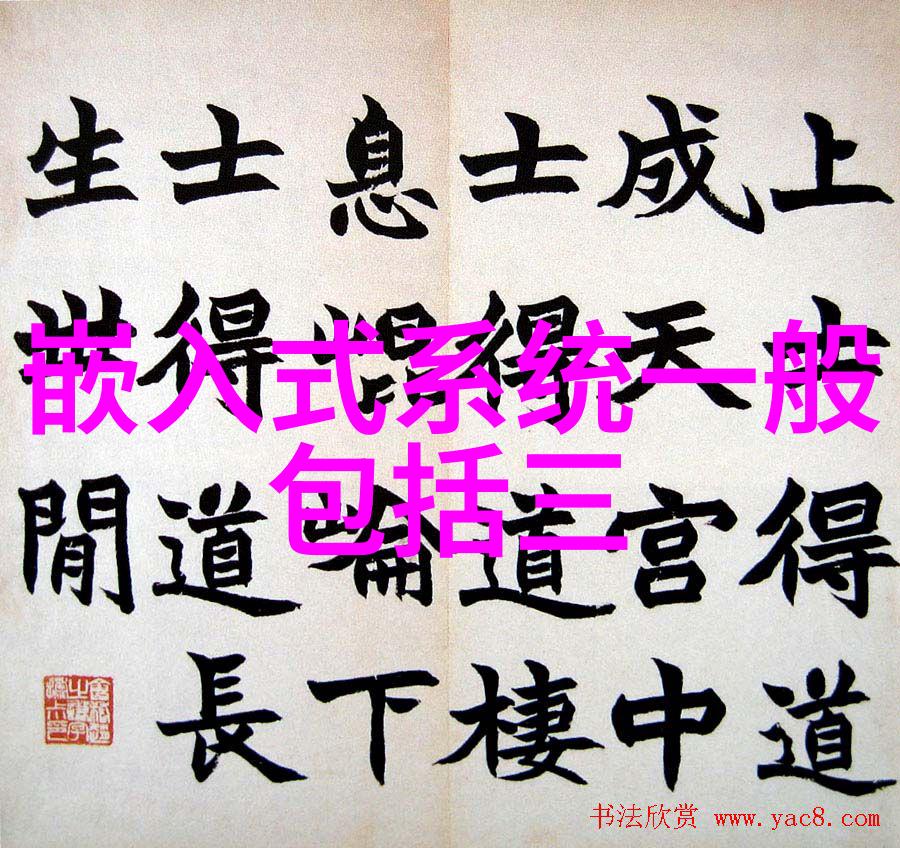 嵌入式系统一般
包括三
上士得道
成天宮中
士得道棲
息崘下
士得道長
生世間
书法欣赏 www.yac8.com